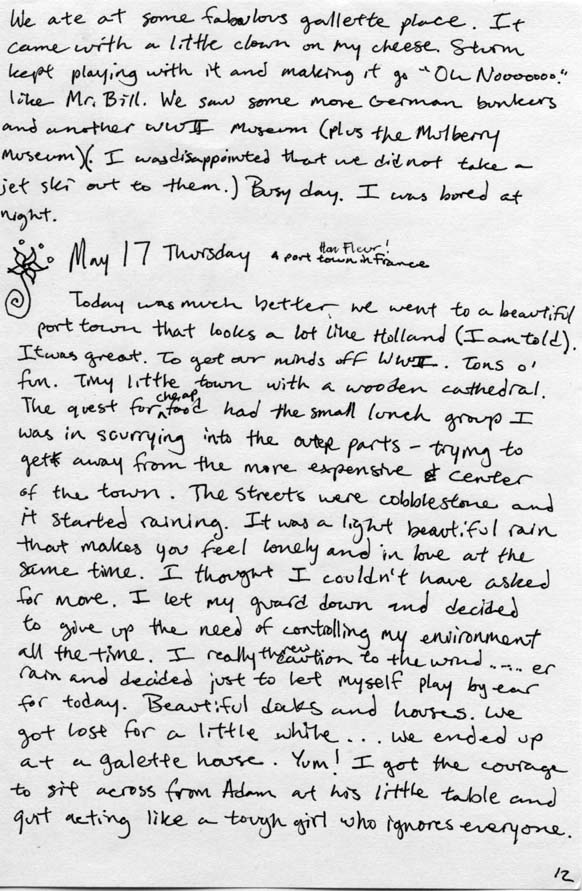 We ate at some fabulous gallette place. It
came with a little clown on my cheese. Sturm
kept playing with it and making it go "Oh Nooooooo."
like Mr. Bill. We saw some more German bunkers
and another WWII Museum (plus the Mulberry
Museum)(. I was disappointed that we did not take a
jet ski out to them.) Busy day. I was bored at
night.
May 17 Thursday a port town in France
Har Fleur!
Today was much better, we went to a beautiful
port town that looks a lot like Holland (I am told).
It was great. To get our minds off WWII. Tons o'
fun. Tiny little town with a wooden cathedral.
The quest for cheap food had the small lunch group I
was in scurrying into the outer parts - trying to
get away from the more expensive center
of the town. The streets were cobblestone and
it started raining. It was a light beautiful rain
that makes you feel lonely and in love at the
same time. I thought I couldn't have asked
for more. I let my guard down and decided
to give up the need of controlling my environment
all the time. I really threw caution to the wind ..... er
rain and decided just to let myself play by ear
for today. Beautiful docks and houses. We
got lost for a little while... we ended up
at a galette house. Yum! I got the courage
to sit across from Adam at his little table and
quit acting like a tough girl who ignores everyone.
12